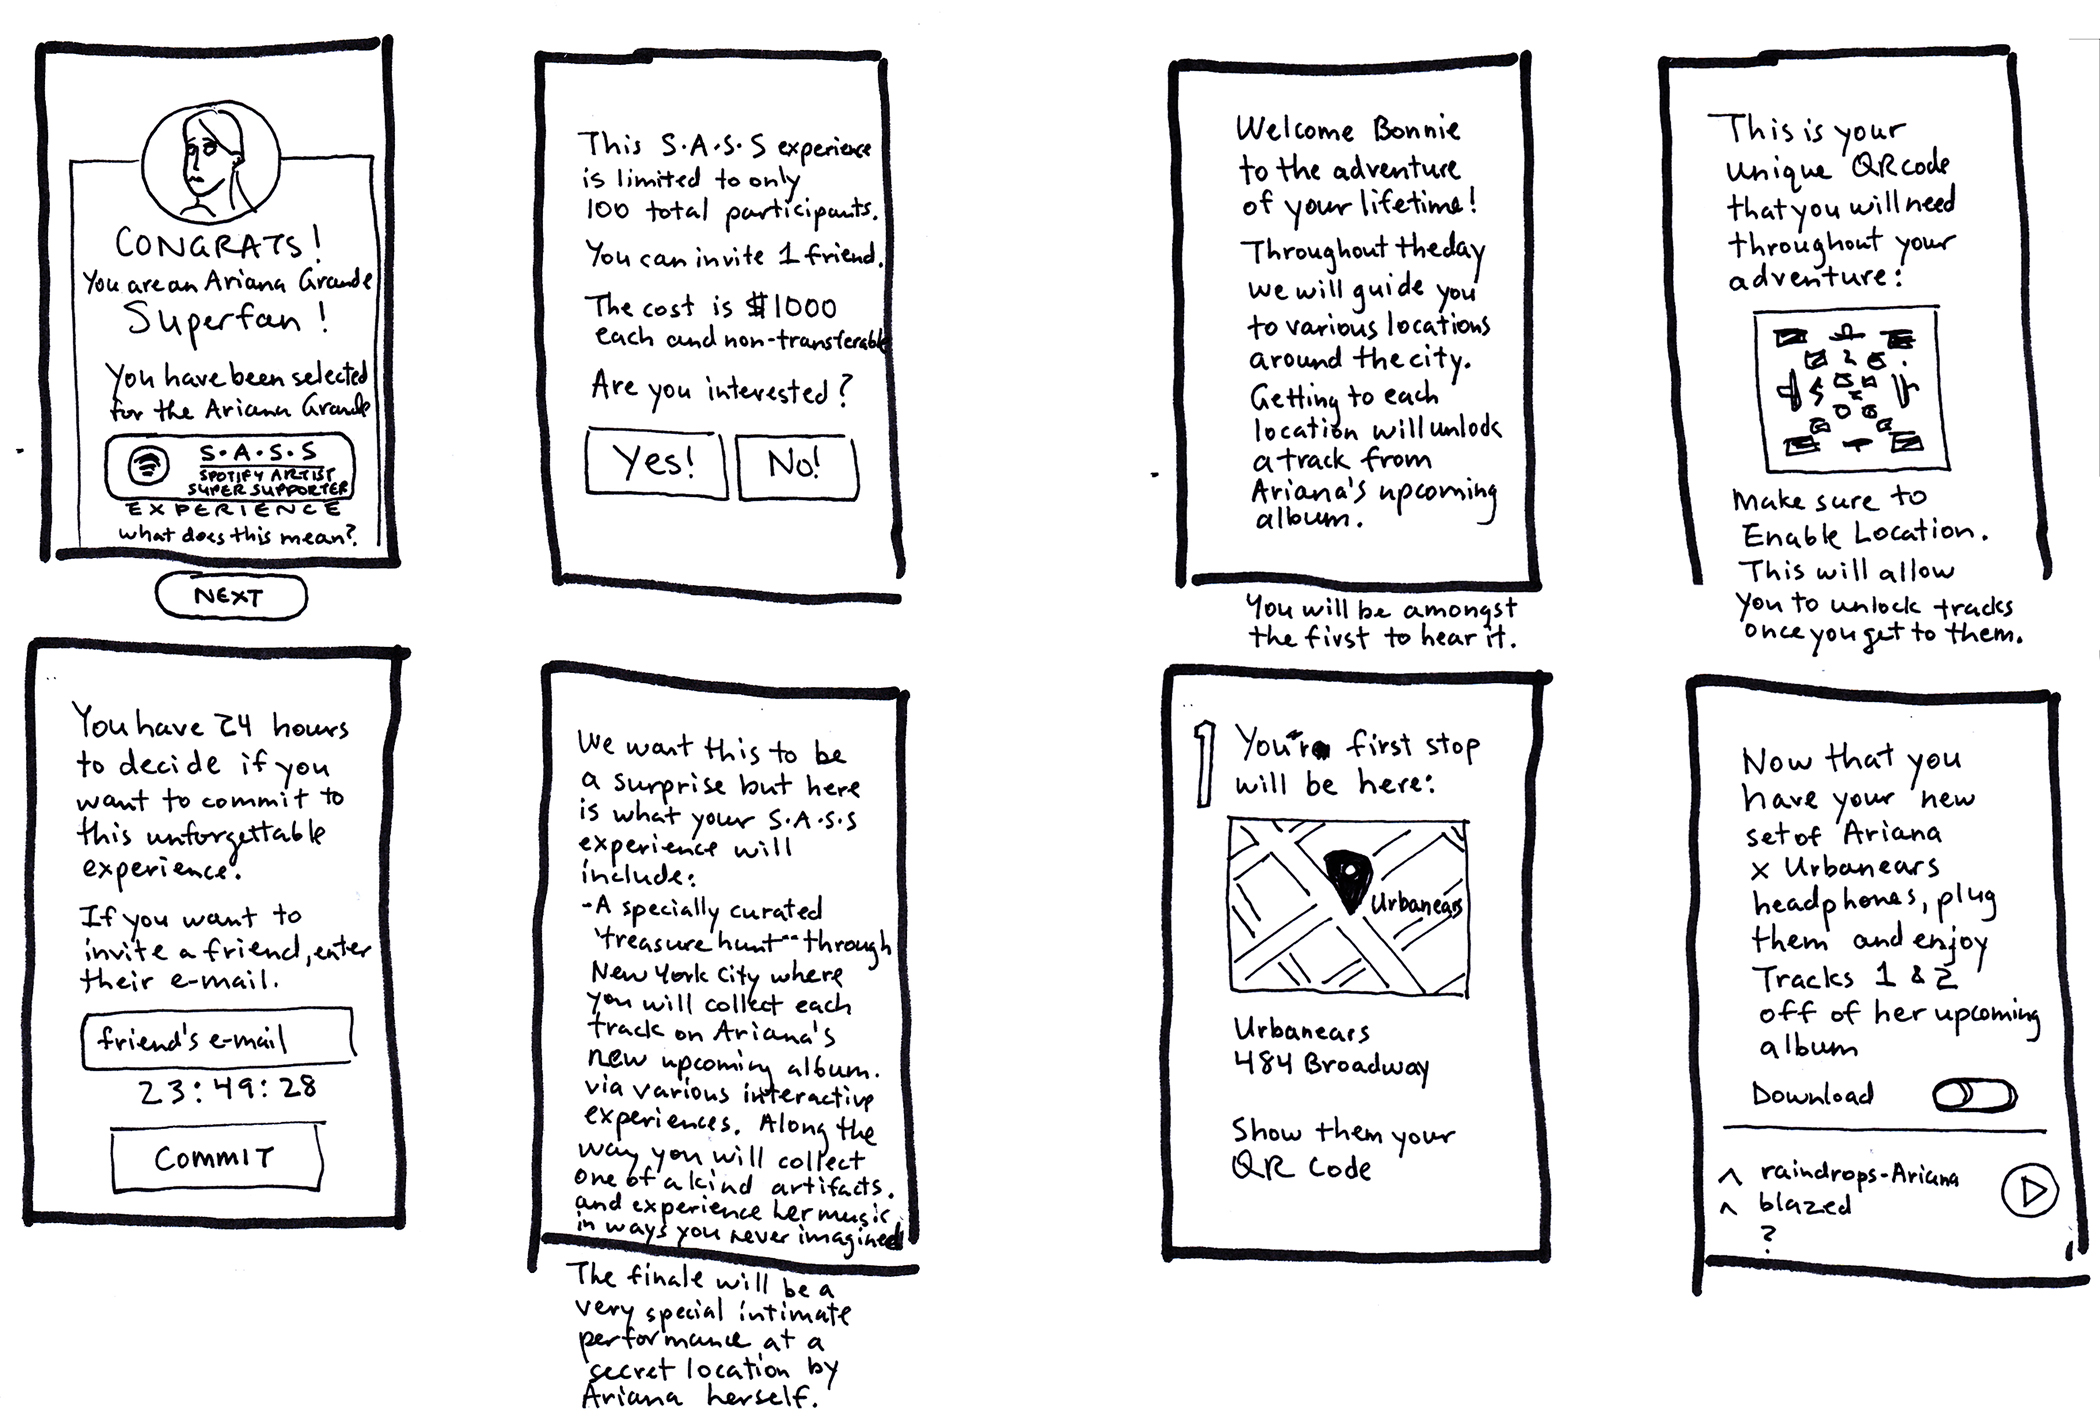 CONGRATS!
You are an Ariana Grande
Superfan!
You have been selected
for the Ariana Grande
S.A.S.S
SPOTIFY ARTIST
SUPER SUPPORTER
EXPERIENCE
what does this mean?
NEXT
This S.A.S.S experience
is limited to only
100 total participants.
You can invite 1 friend.
The cost is $1000
each and non-transferable
Are you interested?
Yes!
No!
You have 24 hours
to decide if you
want to commit to
this unforgettable
experience.
If you want to
invite a friend, enter
their e-mail.
friend's e-mail
23:49:28
COMMIT
We want this to be
a surprise but here
is what your S.A.S.S
experience will
include:
-A specially curated
"treasure hunt" through
New York City where
you will collect each
track on Ariana's
new upcoming album.
via various interactive
experiences. Along the
way you will collect
one of a kind artifacts.
and experience her music
in ways you never imagined
The finale will be a
very special intimate
performance at a
secret location by
Ariana herself.
Welcome Bonnie
to the adventure
of your lifetime!
Throughout the day
we will guide you
to various locations
around the city.
Getting to each
location will unlock
a track from
Ariana's upcoming
album.
You will be amongst
the first to hear it.
This is your
unique QR code
that you will need
throughout your
adventure:
Make sure to
Enable Location.
This will allow
you to unlock tracks
once you get to them.
1
Your first stop
will be here:
Urbanears
Urbanears
484 Broadway
Show them your
QR Code
Now that you
have your new
set of Ariana
x Urbanears
headphones, plug
them and enjoy
Tracks 1 & 2
off of her upcoming
album
Download
^ raindrops-Ariana
^ blazed
?